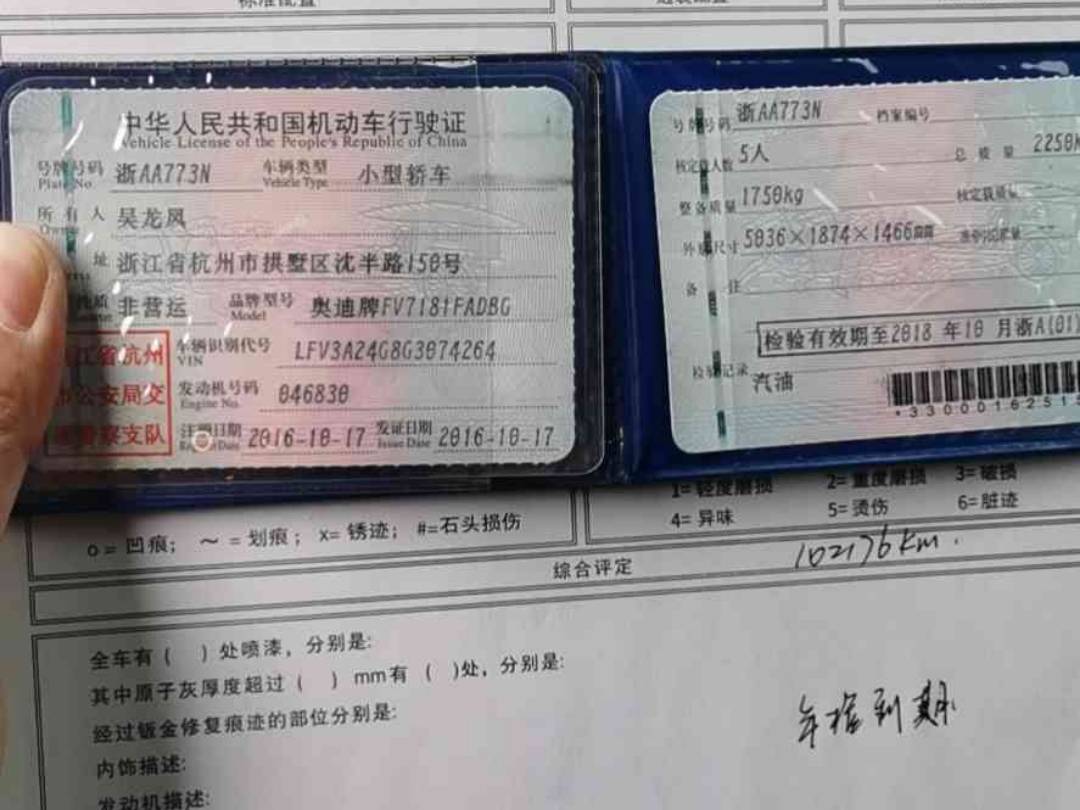 标准配置
中华人民共和国机动车行驶证
Vehicle License of the People's Republic of China
号牌号码 浙AA773N 车辆类型 小型轿车
Plate No. Vehicle Type
所有人 吴龙凤
Owner
址 浙江省杭州市拱墅区沈半路150号
非营运 品牌型号 奥迪牌FV7181FADBG
Model
浙江省杭州 车辆识别代号 LFV3A24G8G3074264
VIN
市公安局交 发动机号码 046830
Engine No.
通警察支队 注册日期 2016-10-17 发证日期 2016-10-17
Issue Date
号牌号码 浙AA773N 档案编号
核定载人数 5人 总质量 2250k
整备质量 1750kg 核定载质量
外廓尺寸 5036×1874×1466mm 准牵引总质量 --
备注
检验有效期至2018年10月浙A(01)
检验记录
汽油
*33000162515
1=轻度磨损 2=重度磨损 3=破损
4=异味 5=烫伤 6=脏迹
o=凹痕; ～=划痕; x=锈迹; #=石头损伤
102176km.
综合评定
全车有( )处喷漆，分别是:
其中原子灰厚度超过( ) mm有( )处，分别是:
经过钣金修复痕迹的部位分别是:
年检到期
内饰描述:
发动机描述: